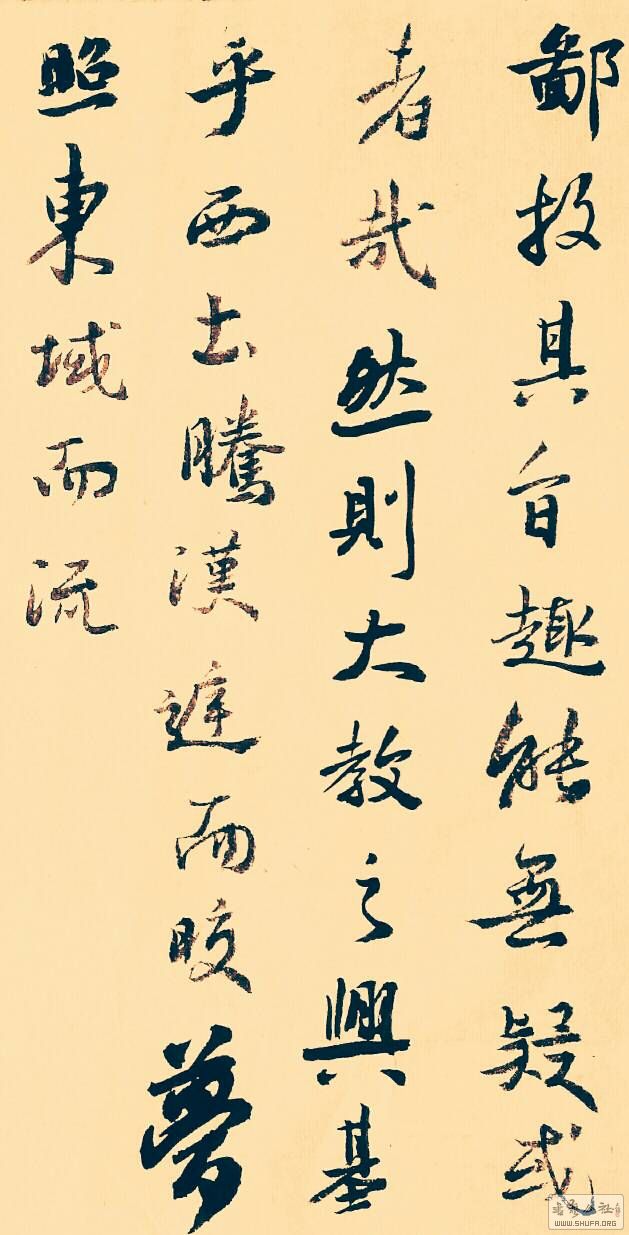 鄙投其旨趣能無疑或
者哉然則大教之興基
乎西土騰漢庭而皎夢
照東域而流
WWW.SHUFA.ORG